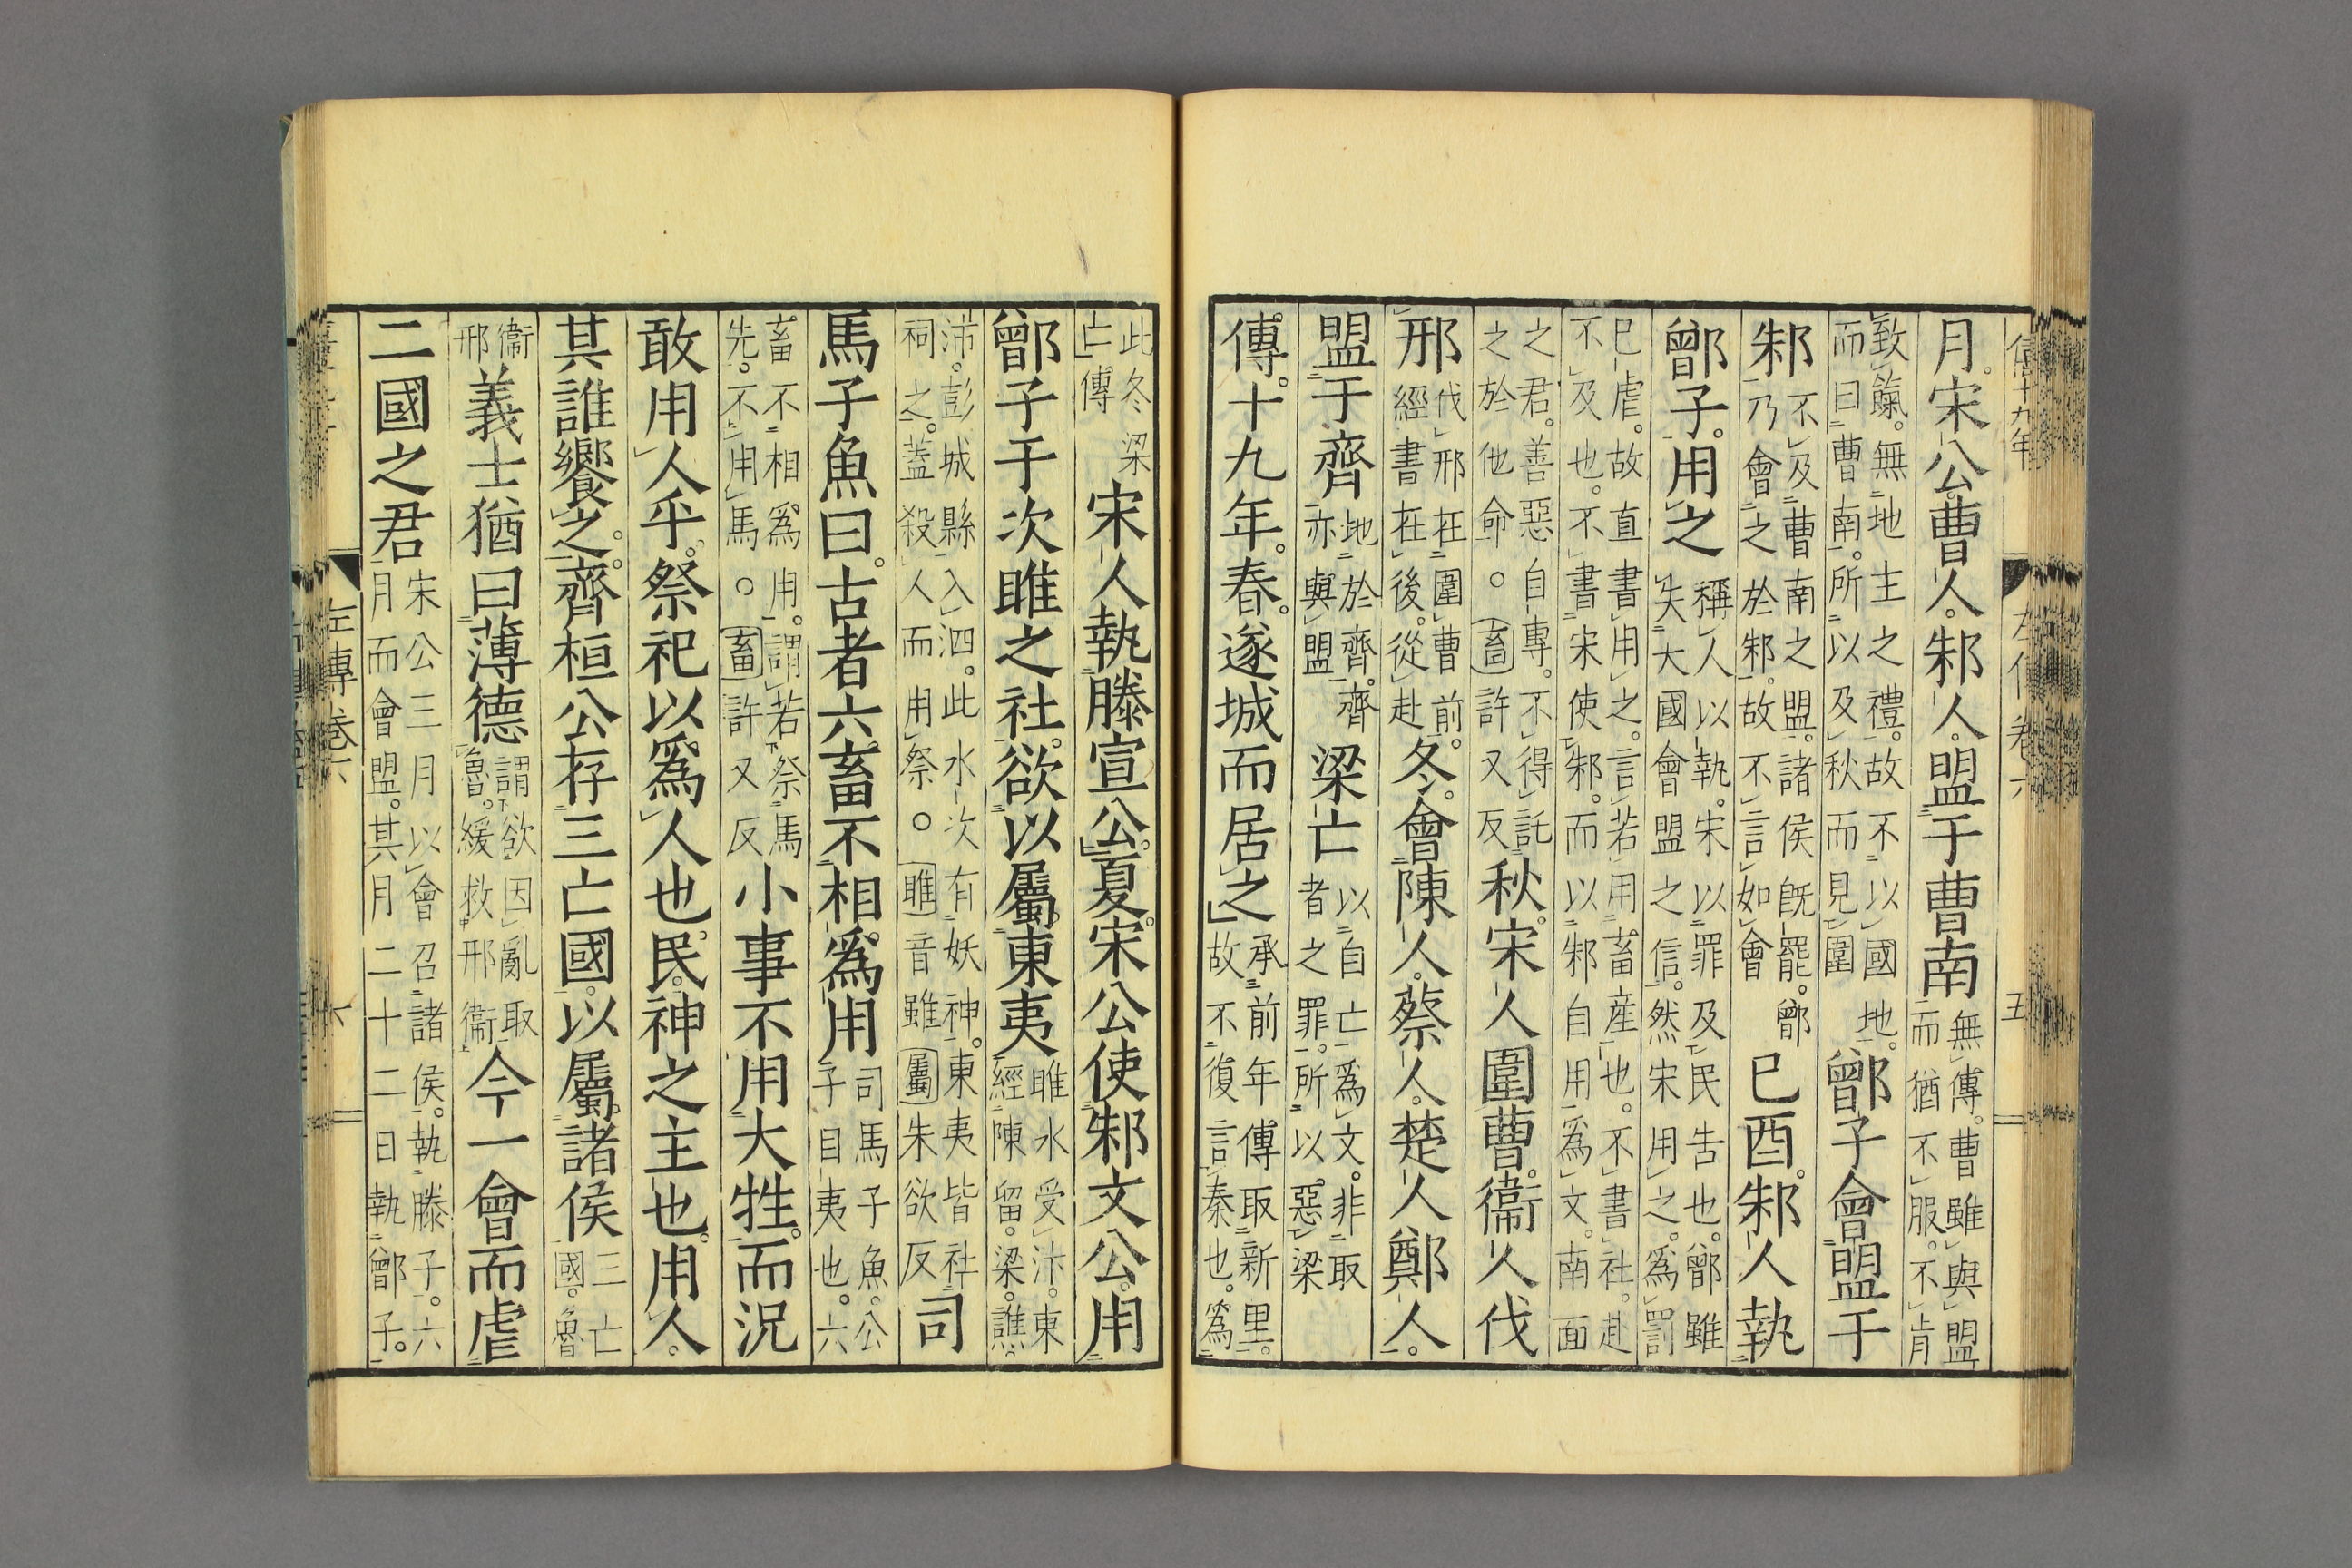 僖十九年 左傳卷六 五
月。宋公。曹人。邾人。盟于曹南無傳。曹雖與盟而猶不服。不肯
致餼。無地主之禮。故不以國地。而曰曹南。所以及秋而見圍鄫子會盟于
邾不及曹南之盟。諸侯旣罷。鄫乃會之於邾。故不言如會已酉。邾人執
鄫子。用之稱人以執。宋以罪及民告也。鄫雖失大國會盟之信。然宋用之。爲罰
已虐。故直書用之。言若用畜産也。不書社。赴不及也。不書宋使邾。而以邾自用爲文。南面
之君。善惡自專。不得託之於他命。○畜許又反秋。宋人圍曹。衞人伐
邢伐邢在圍曹前。經書在後。從赴冬。會陳人。蔡人。楚人鄭人。
盟于齊地於齊。齊亦與盟梁亡以自亡爲文。非取者之罪。所以惡梁
傳。十九年。春。遂城而居之承前年傳取新里。故不復言秦也。爲
此冬梁亡傳宋人執滕宣公。夏。宋公使邾文公。用
鄫子于次睢之社。欲以屬東夷睢水受汴。東經陳留。梁。譙。
沛。彭城縣入泗。此水次有妖神。東夷皆社祠之。蓋殺人而用祭。○睢音雖屬朱欲反司
馬子魚曰。古者六畜不相爲用司馬子魚。公子目夷也。六
畜不相爲用。謂若祭馬先。不用馬。○畜許又反小事不用大牲。而況
敢用人乎。祭祀以爲人也。民。神之主也。用人。
其誰饗之。齊桓公存三亡國。以屬諸侯三亡國。魯
衞邢義士猶曰薄德謂欲因亂取魯。緩救邢衞今一會而虐
二國之君宋公三月以會召諸侯。執滕子。六月而會盟。其月二十二日執鄫子。
左傳卷六 六